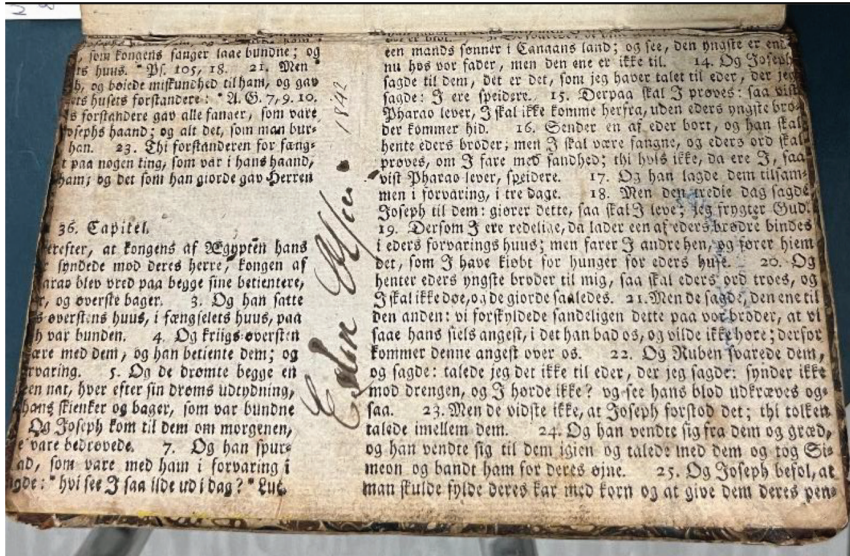 som kongens fanger laae bundne; og
ts huus. * Ps. 105, 18. 21. Men
b, og bøiede miskundhed til ham, og gav
ts husets forstandere: * A. G. 7, 9. 10.
s forstandere gav alle fanger, som vare
osephs haand; og alt det, som man bur-
han. 23. Thi forstanderen for fæng-
t paa nogen ting, som var i hans haand,
ham; og det som han giorde gav Herren
36. Capitel.
erefter, at kongens af Ægypten hans
r syndede mod deres herre, kongen af
arao blev vred paa begge sine betientere,
r, og øverste bager. 3. Og han satte
øverstens huus, i fængselets huus, paa
h var bunden. 4. Og kriigs-øversten
ære med dem, og han betiente dem; og
rvaring. 5. Og de drømte begge en
een nat, hver efter sin drøms udtydning,
hans skienker og bager, som var bundne
Og Joseph kom til dem om morgenen,
e vare bedrøvede. 7. Og han spur-
ad, som vare med ham i forvaring i
igde: * hvi see I saa ilde ud i dag? * Luc.
1842
een mands sønner i Canaans land; og see, den yngste er end-
nu hos vor fader, men den ene er ikke til. 14. Og Joseph
sagde til dem, det er det, som jeg haver talet til eder, der jeg
sagde: I ere speidere. 15. Derpaa skal I prøves: saa vist
Pharao lever, I skal ikke komme herfra, uden eders yngste bro-
der kommer hid. 16. Sender en af eder bort, og han skal
hente eders broder; men I skal være fangne, og eders ord skal
prøves, om I fare med sandhed; thi hvis ikke, da ere I, saa
vist Pharao lever, speidere. 17. Og han lagde dem tilsam-
men i forvaring, i tre dage. 18. Men den tredie dag sagde
Joseph til dem: giører dette, saa skal I leve; jeg frygter Gud.
19. Dersom I ere redelige, da lader een af eders brødre bindes
i eders forvarings huus; men farer I andre hen, og fører hiem
det, som I have kiøbt for hunger for eders huse. 20. Og
henter eders yngste broder til mig, saa skal eders ord troes, og
I skal ikke døe, og de giorde saaledes. 21. Men de sagde, den ene til
den anden: vi forskyldede sandeligen dette paa vor broder, at vi
saae hans siels angest, i det han bad os, og vilde ikke høre; derfor
kommer denne angest over os. 22. Og Ruben svarede dem,
og sagde: talede jeg det ikke til eder, der jeg sagde: synder ikke
mod drengen, og I hørde ikke? og see hans blod udkræves og-
saa. 23. Men de vidste ikke, at Joseph forstod det; thi tolken
talede imellem dem. 24. Og han vendte sig fra dem og græd,
og han vendte sig til dem igien og talede med dem og tog Si-
meon og bandt ham for deres øjne. 25. Og Joseph befol, at
man skulde fylde deres kar med korn og at give dem deres pen-